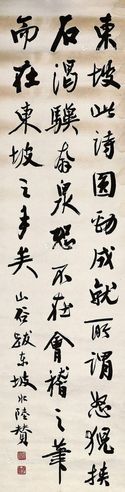 東坡此詩圓勁成就所謂怒猊抉
石渴驥奔泉恐不在會稽之筆
而在東坡之手矣
山谷跋東坡水陸贊